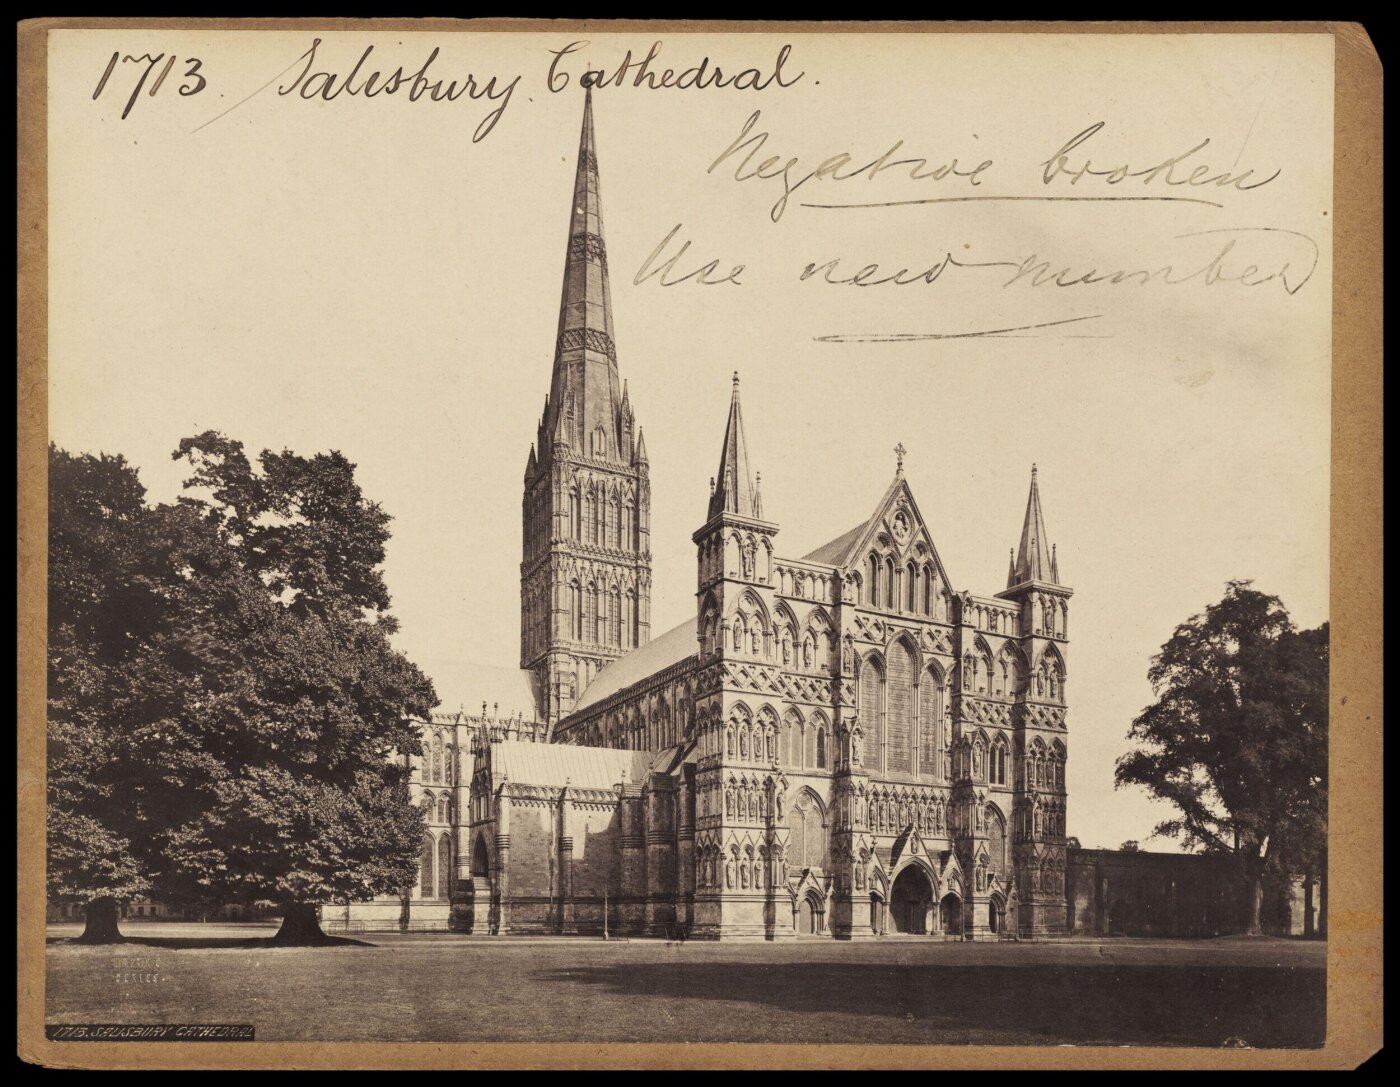 1713. Salisbury Cathedral.
Negative broken
Use new number
SERIES.
1713. SALISBURY CATHEDRAL